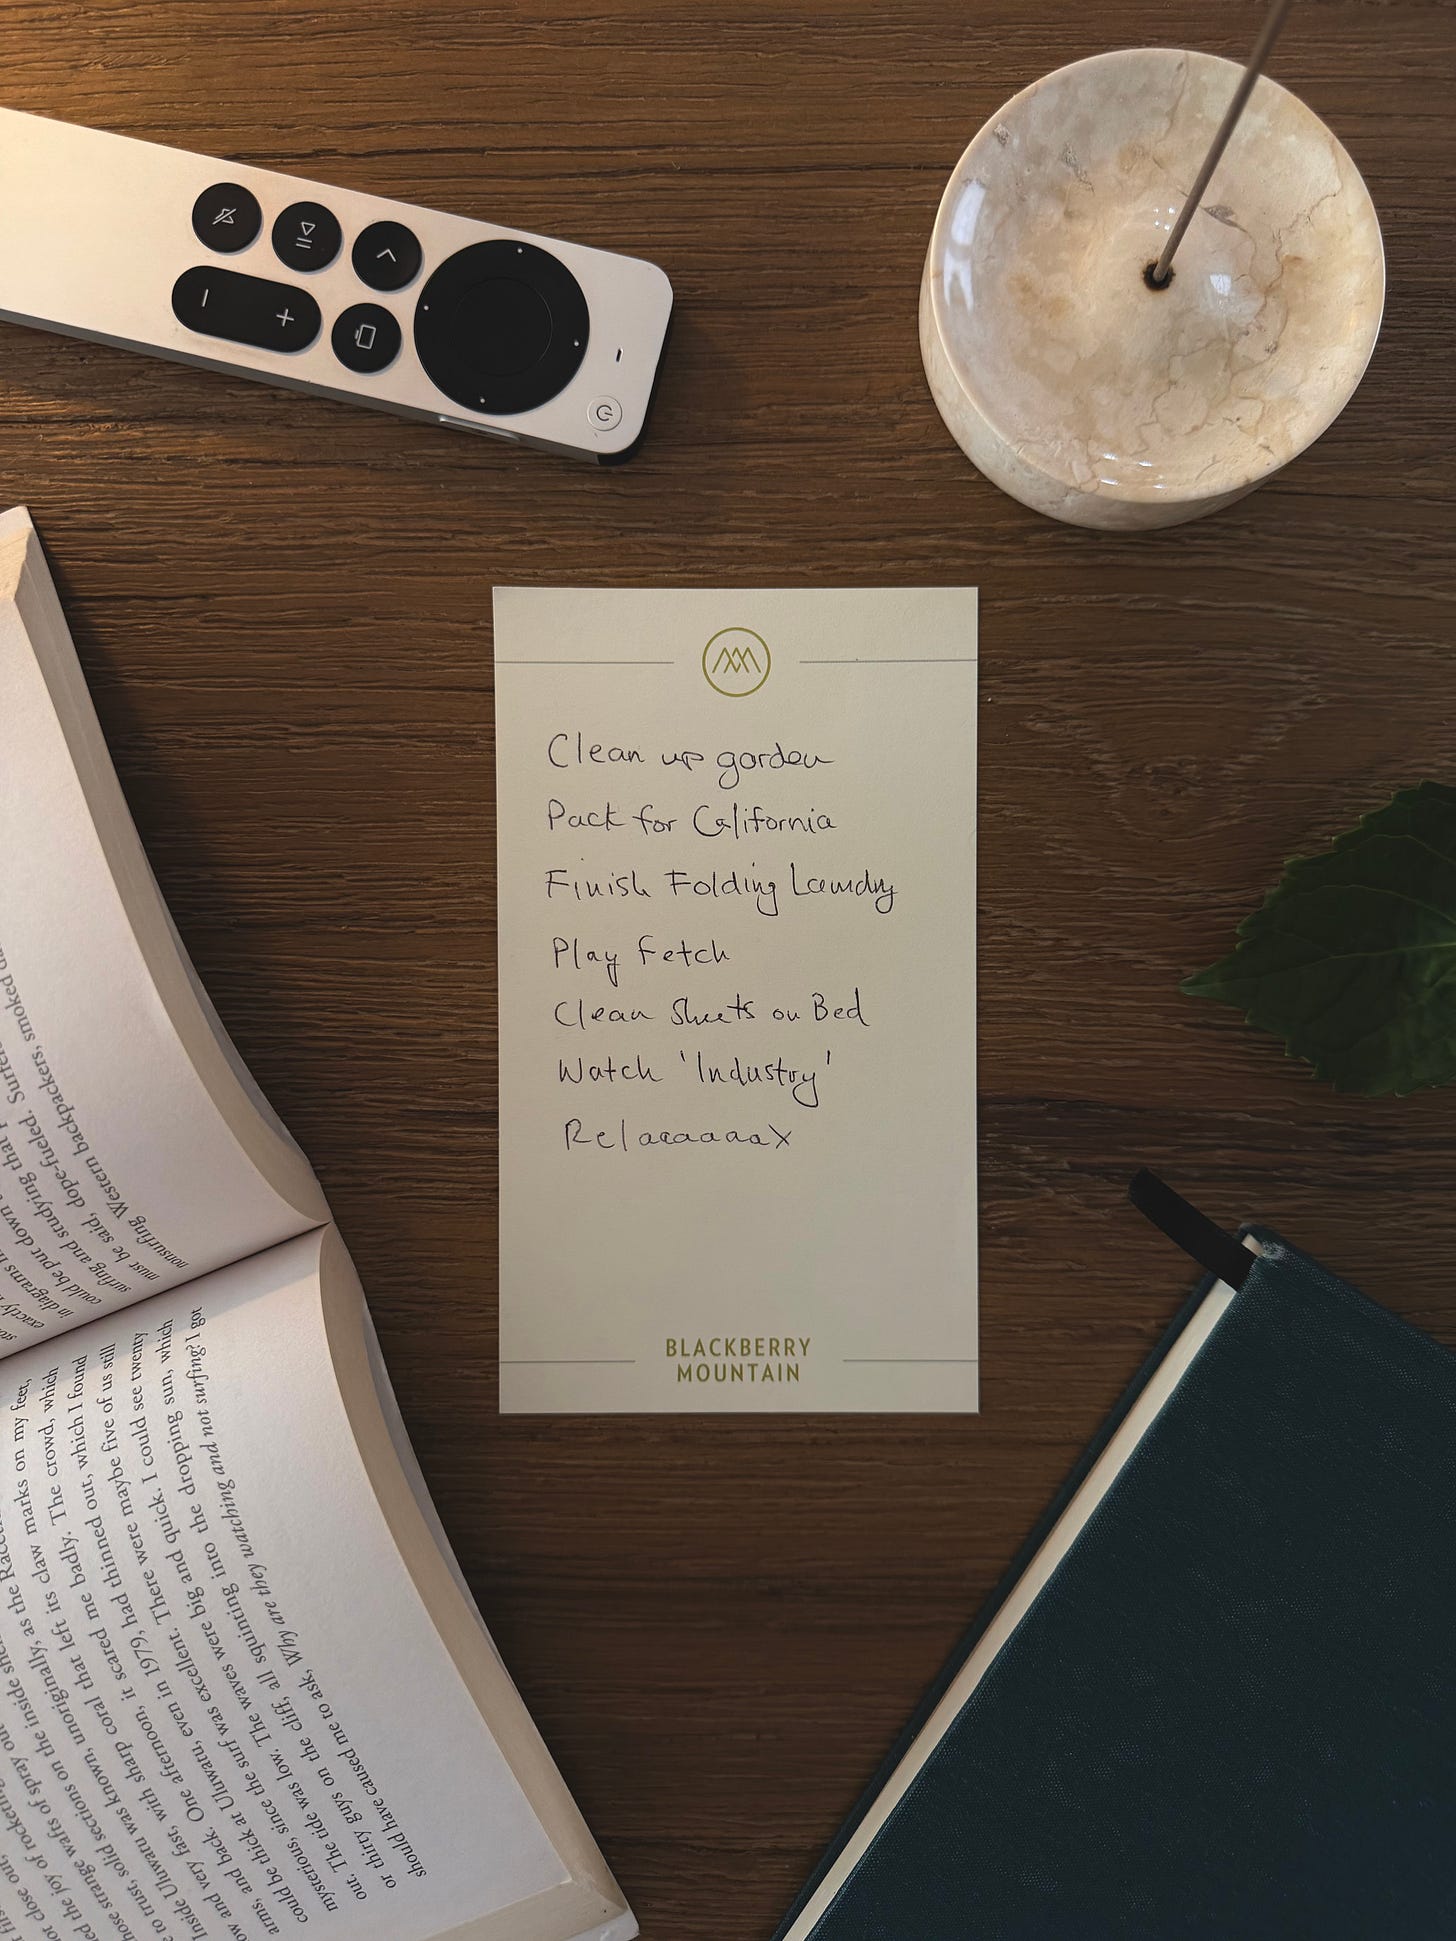 Clean up garden
Pack for California
Finish Folding Laundry
Play Fetch
Clean Sheets on Bed
Watch 'Industry'
Relaaaaaax
BLACKBERRY
MOUNTAIN
in diagrams
could be put down
surfing and studying that
must be said, dope-fueled. Surfers
nonsurfing Western backpackers, smoked
not close out,
the joy of rocketing
strange wafts of spray out
to trust, solid sections on the inside
Inside Uluwatu was known, unoriginally, as the
and very fast, with sharp coral that left its claw marks on my feet,
arms, and back. One afternoon, it scared me badly. The crowd, which
could be thick at Uluwatu, even in 1979, had thinned out, which I found
mysterious, since the surf was excellent. There were maybe five of us still
out. The tide was low. The waves were big and quick. I could see twenty
or thirty guys on the cliff, all squinting into the dropping sun, which
should have caused me to ask, Why are they watching and not surfing? I got